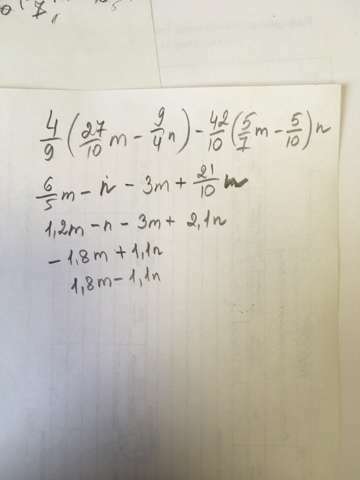 4/9 (27/10 m - 9/4 n) - 42/10 (5/7 m - 5/10) n
6/5 m - n - 3m + 21/10 n
1,2m - n - 3m + 2,1n
- 1,8m + 1,1n
1,8m - 1,1n